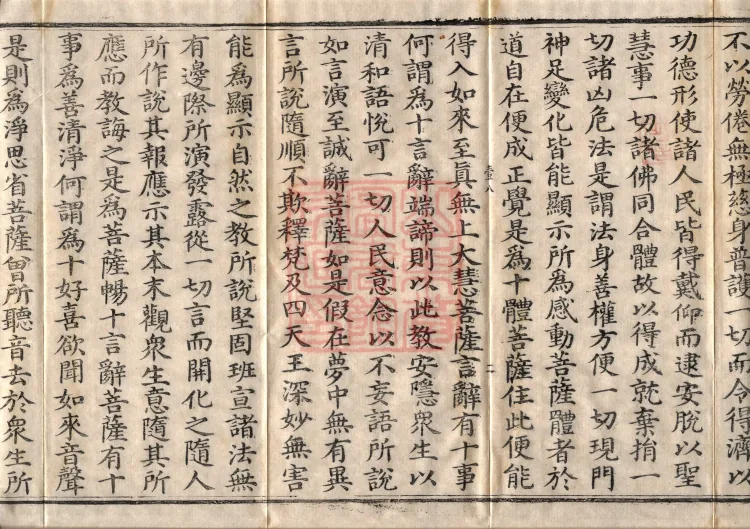 不以勞倦無極慈身普護一切而令得濟以
功德形使諸人民皆得戴仰而逮安脫以聖
慧事一切諸佛同合體故以得成就棄捐一
切諸凶危法是謂法身善權方便一切現門
神足變化皆能顯示所為感動菩薩體者於
道自在便成正覺是為十體菩薩住此便能
得入如來至真無上大慧菩薩言辭有十事
何謂為十言辭端諦則以此教安隱眾生以
清和語悅可一切人民意念以不妄語所說
如言演至誠辭菩薩如是假在夢中無有異
言所說隨順不欺釋梵及四天王深妙無害
能為顯示自然之教所說堅固班宣諸法無
有邊際所演發露從一切言而開化之隨人
所作說其報應示其本末觀眾生意隨其所
應而教誨之是為菩薩暢十言辭菩薩有十
事為善清淨何謂為十好喜欲聞如來音聲
是則為淨思省菩薩曾所聽音去於眾生所
壹八
二